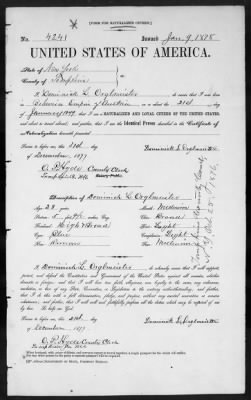 [FORM FOR NATURALIZED CITIZEN.]
No. 4241 Issued Jan. 9, 1878
UNITED STATES OF AMERICA.
State of New York
County of Tompkins
I, Dominick L. Orglmeister do swear that I was born in
Bohemia Empire of Austria on or about the 21st day
of January 1849, that I am a NATURALIZED AND LOYAL CITIZEN OF THE UNITED STATES,
and about to travel abroad; and further, that I am the Identical Person described in the Certificate of
Naturalization herewith presented.
Sworn to before me this 31st day
of December 1877 Dominick L. Orglmeister
O. P. Hyde County Clerk
Description of Dominick L. Orglmeister
Age: 28 years Mouth: Medium
Stature: 5 feet Chin: Broad
Forehead: High & Broad Hair: Light
Eyes: Blue Complexion: Light
Nose: Roman Face: Medium
I, Dominick L. Orglmeister do solemnly swear that I will support, protect,
and defend the Constitution and Government of the United States against all enemies, whether
domestic or foreign; and that I will bear true faith, allegiance, and loyalty to the same, any ordinance,
resolution, or law of any State, Convention, or Legislature to the contrary notwithstanding; and further,
that I do this with a full determination, pledge, and purpose, without any mental reservation or evasion
whatsoever; and further, that I will well and faithfully perform all the duties which may be required of me
by law. So help me God.
Sworn to before me this 31st day
of December 1877 Dominick L. Orglmeister
O. P. Hyde County Clerk